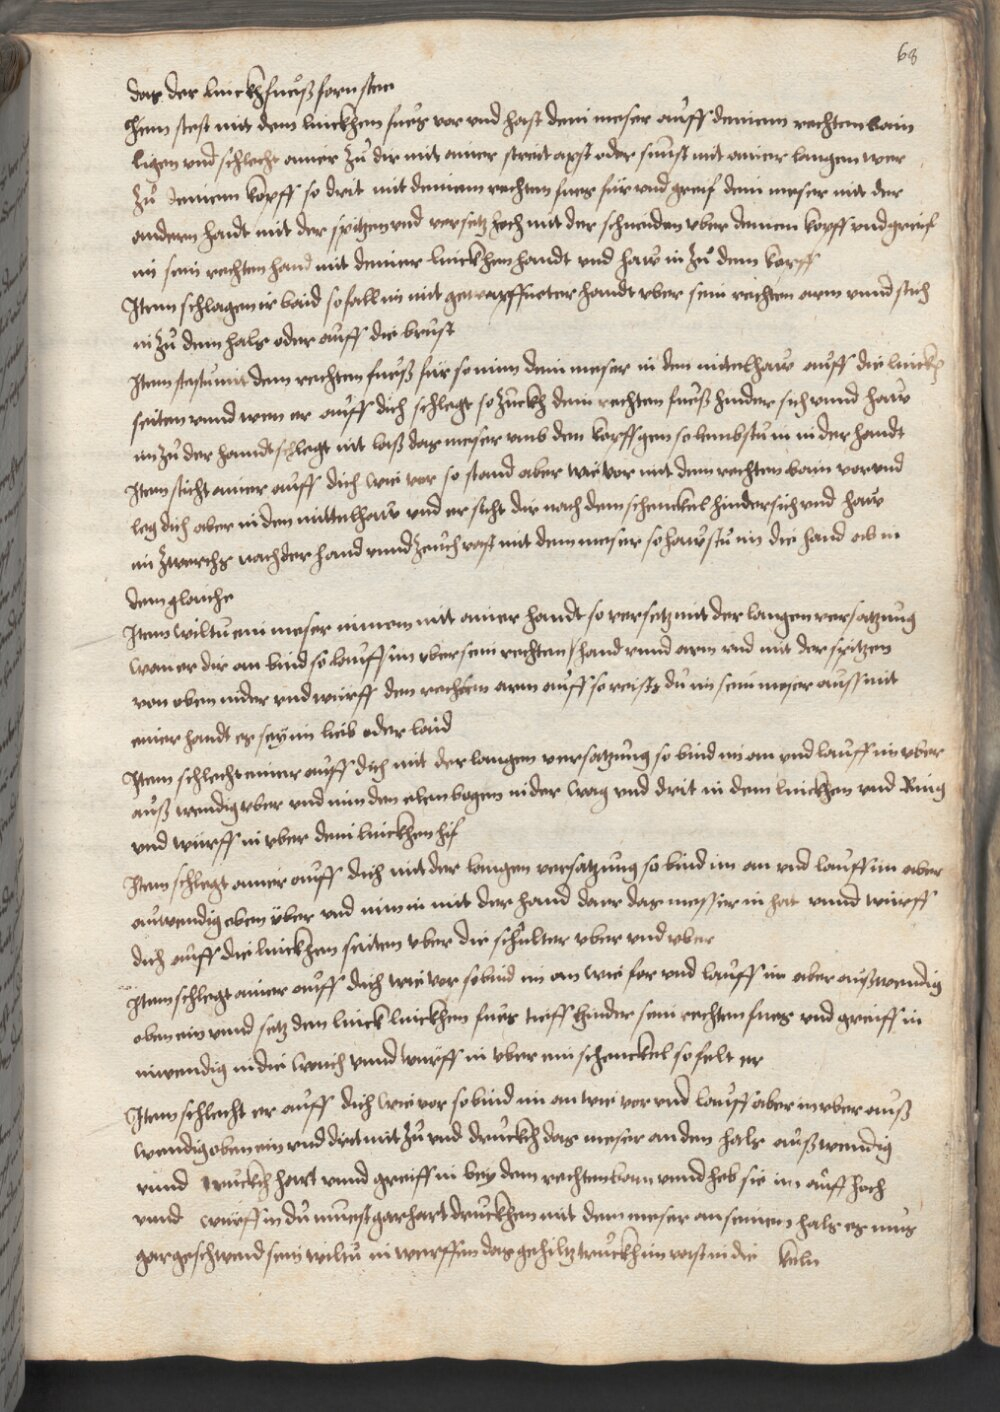 68
das der linckh fueß forn stee
Item stest mit dem linckhen fues vor vnd hast dein meser auff deinem rechten bain
ligen vnd schlecht ainer zu dir mit ainer streit axst oder sunst mit ainer langen wer
zu deinem kopff so drit mit deinem rechten fues für vnd greif dein meser mit der
andern handt mit der spitzen vnd versetz hoch mit der schneiden vber deinen kopff vnd greif
im sein rechten hand mit deiner linckhen handt vnd haw in zu dem kopff
Item schlagen ir baid so fall im mit gewapffneter handt vber sein rechten arm vnnd stich
in zu dem hals oder auff die brust
Item stestu mit dem rechten fueß für so nim dein meser in den mitelhaw auff die linckh
seiten vnnd wen er auff dich schlegt so zuckh dein rechten fueß hinder sich vnnd haw
im zu der hanndt schlegt nit laß das meser vmb den kopff gen so lembstu in in der handt
Item sticht ainer auff dich wie vor so stand aber wie vor mit dem rechten bain vor vnd
leg dich aber in den mittelhaw vnd er sticht dir nach dem schenckel hindersich vnd haw
im zwerchs nach der hand vnnd zeuch vast mit dem meser so hawstu im die hand ab in
dem glaiche
Item wiltu ein meser nimem mit ainer handt so versetz mit der langen versatzung
wan er dir an bind so lauff im vber sein rechten hand vnnd arm vnd mit der spitzen
von oben nider vnd würff den rechten arm auff so reists du im sein meser auss mit
einer handt es sey im lieb oder laid
Item schlecht einer auff dich mit der langen versatzung so bind im an vnd lauff im vber
auß wendig vber vnd nim den elenbogen in der wag vnd drit in dem linckhen vnd Ring
vnd würff in vber dein linckhen hüf
Item schlegt ainer auff dich mit der langen versatzung so bind im an vnd lauff im aber
auwendig oben über vnd nim in mit der hand da er das messer in hat vnnd würff
dich auff die linckhen seiten vber die schulter vber vnd vber
Item schlegt ainer auff dich wie vor so bind im an wie for vnd lauff im aber außwendig
oben ein vnnd setz den linck linckhen fues tieff hinder sein rechten fues vnd greiff in
inwendig in die waich vnnd würff in vber ein schenckel so felt er
Item schlecht er auff dich wie vor so bind im an wie vor vnd lauff aber im vber auß
wendig oben ein vnd drit mit zu vnd druckh das meser an den hals außwendig
vnnd truckh hart vnnd greiff in bey dem rechten bain vnnd heb sie im auff hoch
vnnd würff in du muest gar hart druckhen mit dem meser an seinen hals es mus
gar geschwind sein wiltu in werffen das gehiltz truckh im vast in die keln